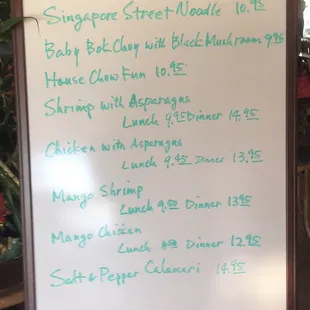 Singapore Street Noodle 10.95
Baby Bok Choy with Black Mushroom 9.95
House Chow Fun 10.95
Shrimp with Asparagus
Lunch 9.95 Dinner 14.95
Chicken with Asparagus
Lunch 9.45 Dinner 13.95
Mango Shrimp
Lunch 9.50 Dinner 13.95
Mango Chicken
Lunch Dinner 12.95
Salt & Pepper Calamari 14.95